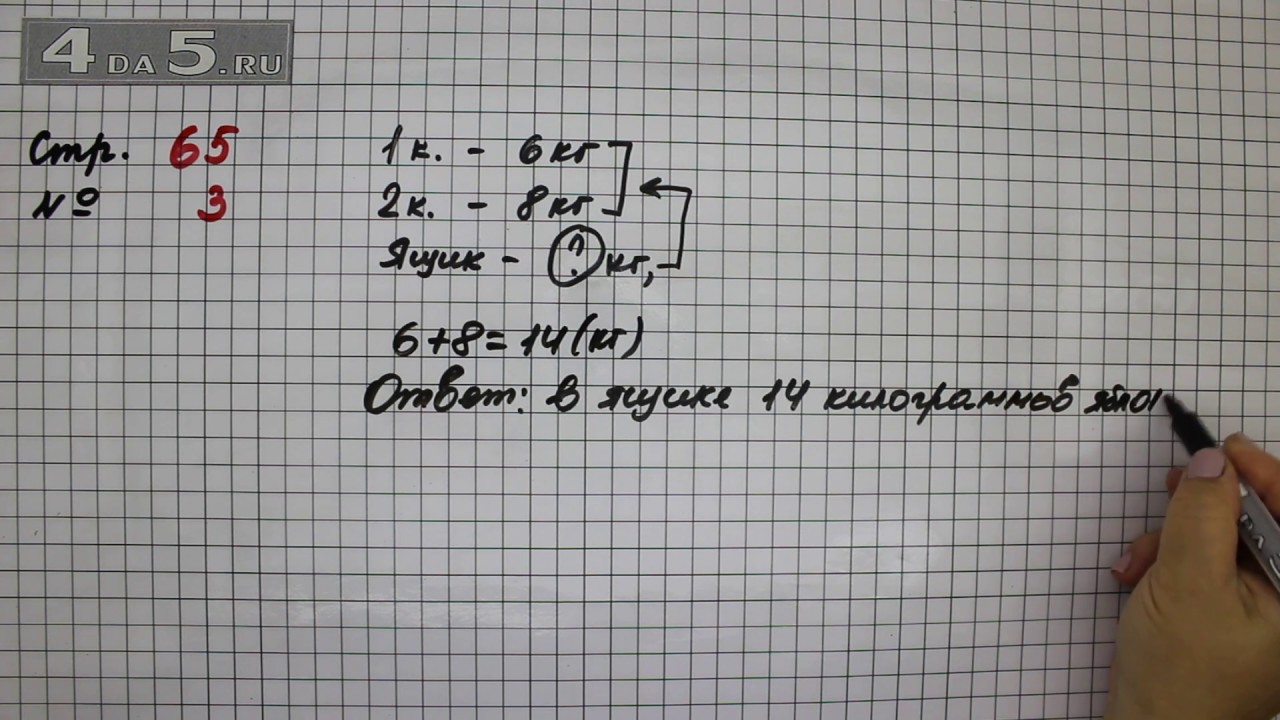 4 DA 5.RU
Стр. 65
№ 3
1к. - 6кг
2к. - 8кг
Ящик - ? кг,
6+8=14(кг)
Ответ: в ящике 14 килограммов ябло